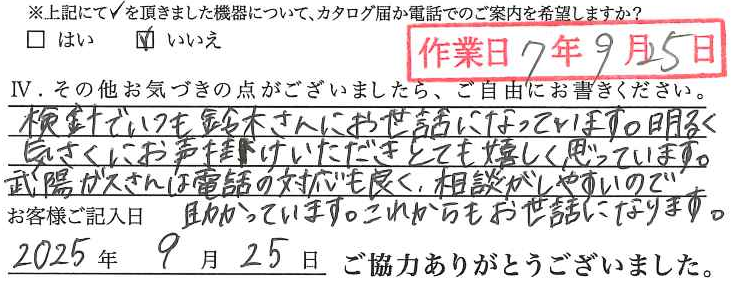 ※上記にて✓を頂きました機器について、カタログ届か電話でのご案内を希望しますか?
□ はい ☑ いいえ
作業日 7年9月25日
Ⅳ．その他お気づきの点がございましたら、ご自由にお書きください。
検針でいつも鈴木さんにお世話になっています。明るく
気さくにお声掛けいただきとても嬉しく思っています。
武陽ガスさんは電話の対応も良く、相談がしやすいので
助かっています。これからもお世話になります。
お客様ご記入日
2025年 9月 25日 ご協力ありがとうございました。